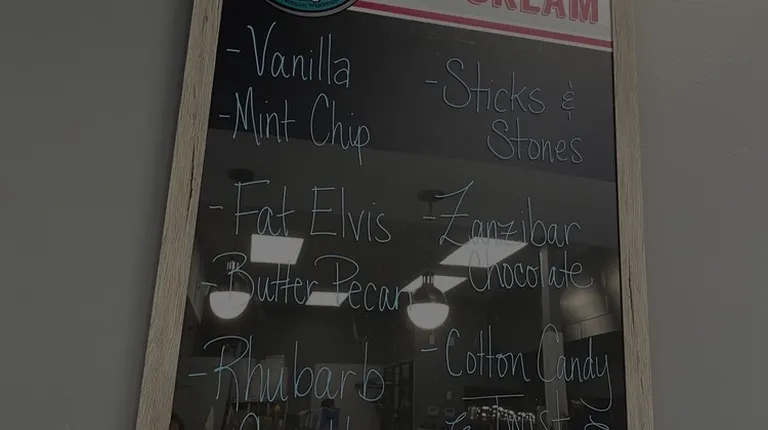 CREAM
- Vanilla
- Mint Chip
- Fat Elvis
- Butter Pecan
- Rhubarb
- Sticks &
Stones
- Zanzibar
Chocolate
- Cotton Candy
Twist